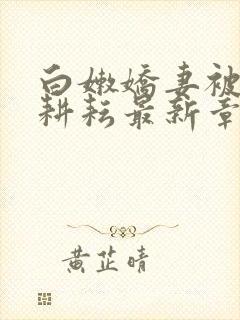 白嫩嬌妻被
耕耘最新章
黄芷晴